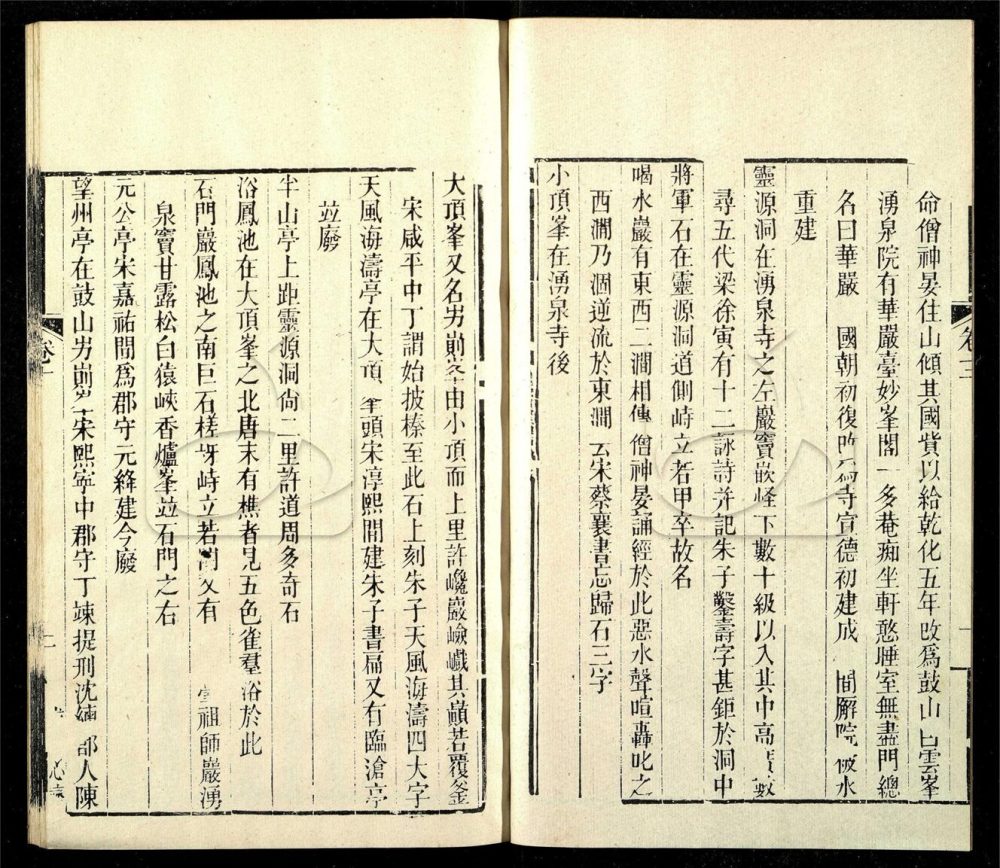 命僧神晏住山傾其國貲以給乾化五年改爲鼓山白雲峯
湧泉院有華嚴臺妙峯閣 多菴痴坐軒憨睡室無盡門總
名曰華嚴 國朝初復改爲寺宣德初建成 間解院 水
重建
靈源洞在湧泉寺之左巖竇嵌怪下數十級以入其中高廣數
尋五代梁徐寅有十二詠詩幷記朱子鑿壽字甚鉅於洞中
將軍石在靈源洞道側峙立若甲卒故名
喝水巖有東西二澗相傳僧神晏誦經於此惡水聲喧轟叱之
西澗乃涸逆流於東澗 云宋蔡襄書忘歸石三字
小頂峯在湧泉寺後
卷二
大頂峯又名屴崱峯由小頂而上里許巉巖嶮巇其巔若覆釜
宋咸平中丁謂始披榛至此石上刻朱子天風海濤四大字
天風海濤亭在大頂峯頭宋淳熙間建朱子書扁又有臨滄亭
竝廢
半山亭上距靈源洞尙二里許道周多奇石
浴鳳池在大頂峯之北唐末有樵者見五色雀羣浴於此
石門巖鳳池之南巨石槎牙峙立若門又有 祖師巖湧
泉竇甘露松白猿峽香爐峯竝石門之右
元公亭宋嘉祐間爲郡守元絳建今廢
望州亭在鼓山屴崱峯宋熙寧中郡守丁竦提刑沈 郡人陳
卷二
二